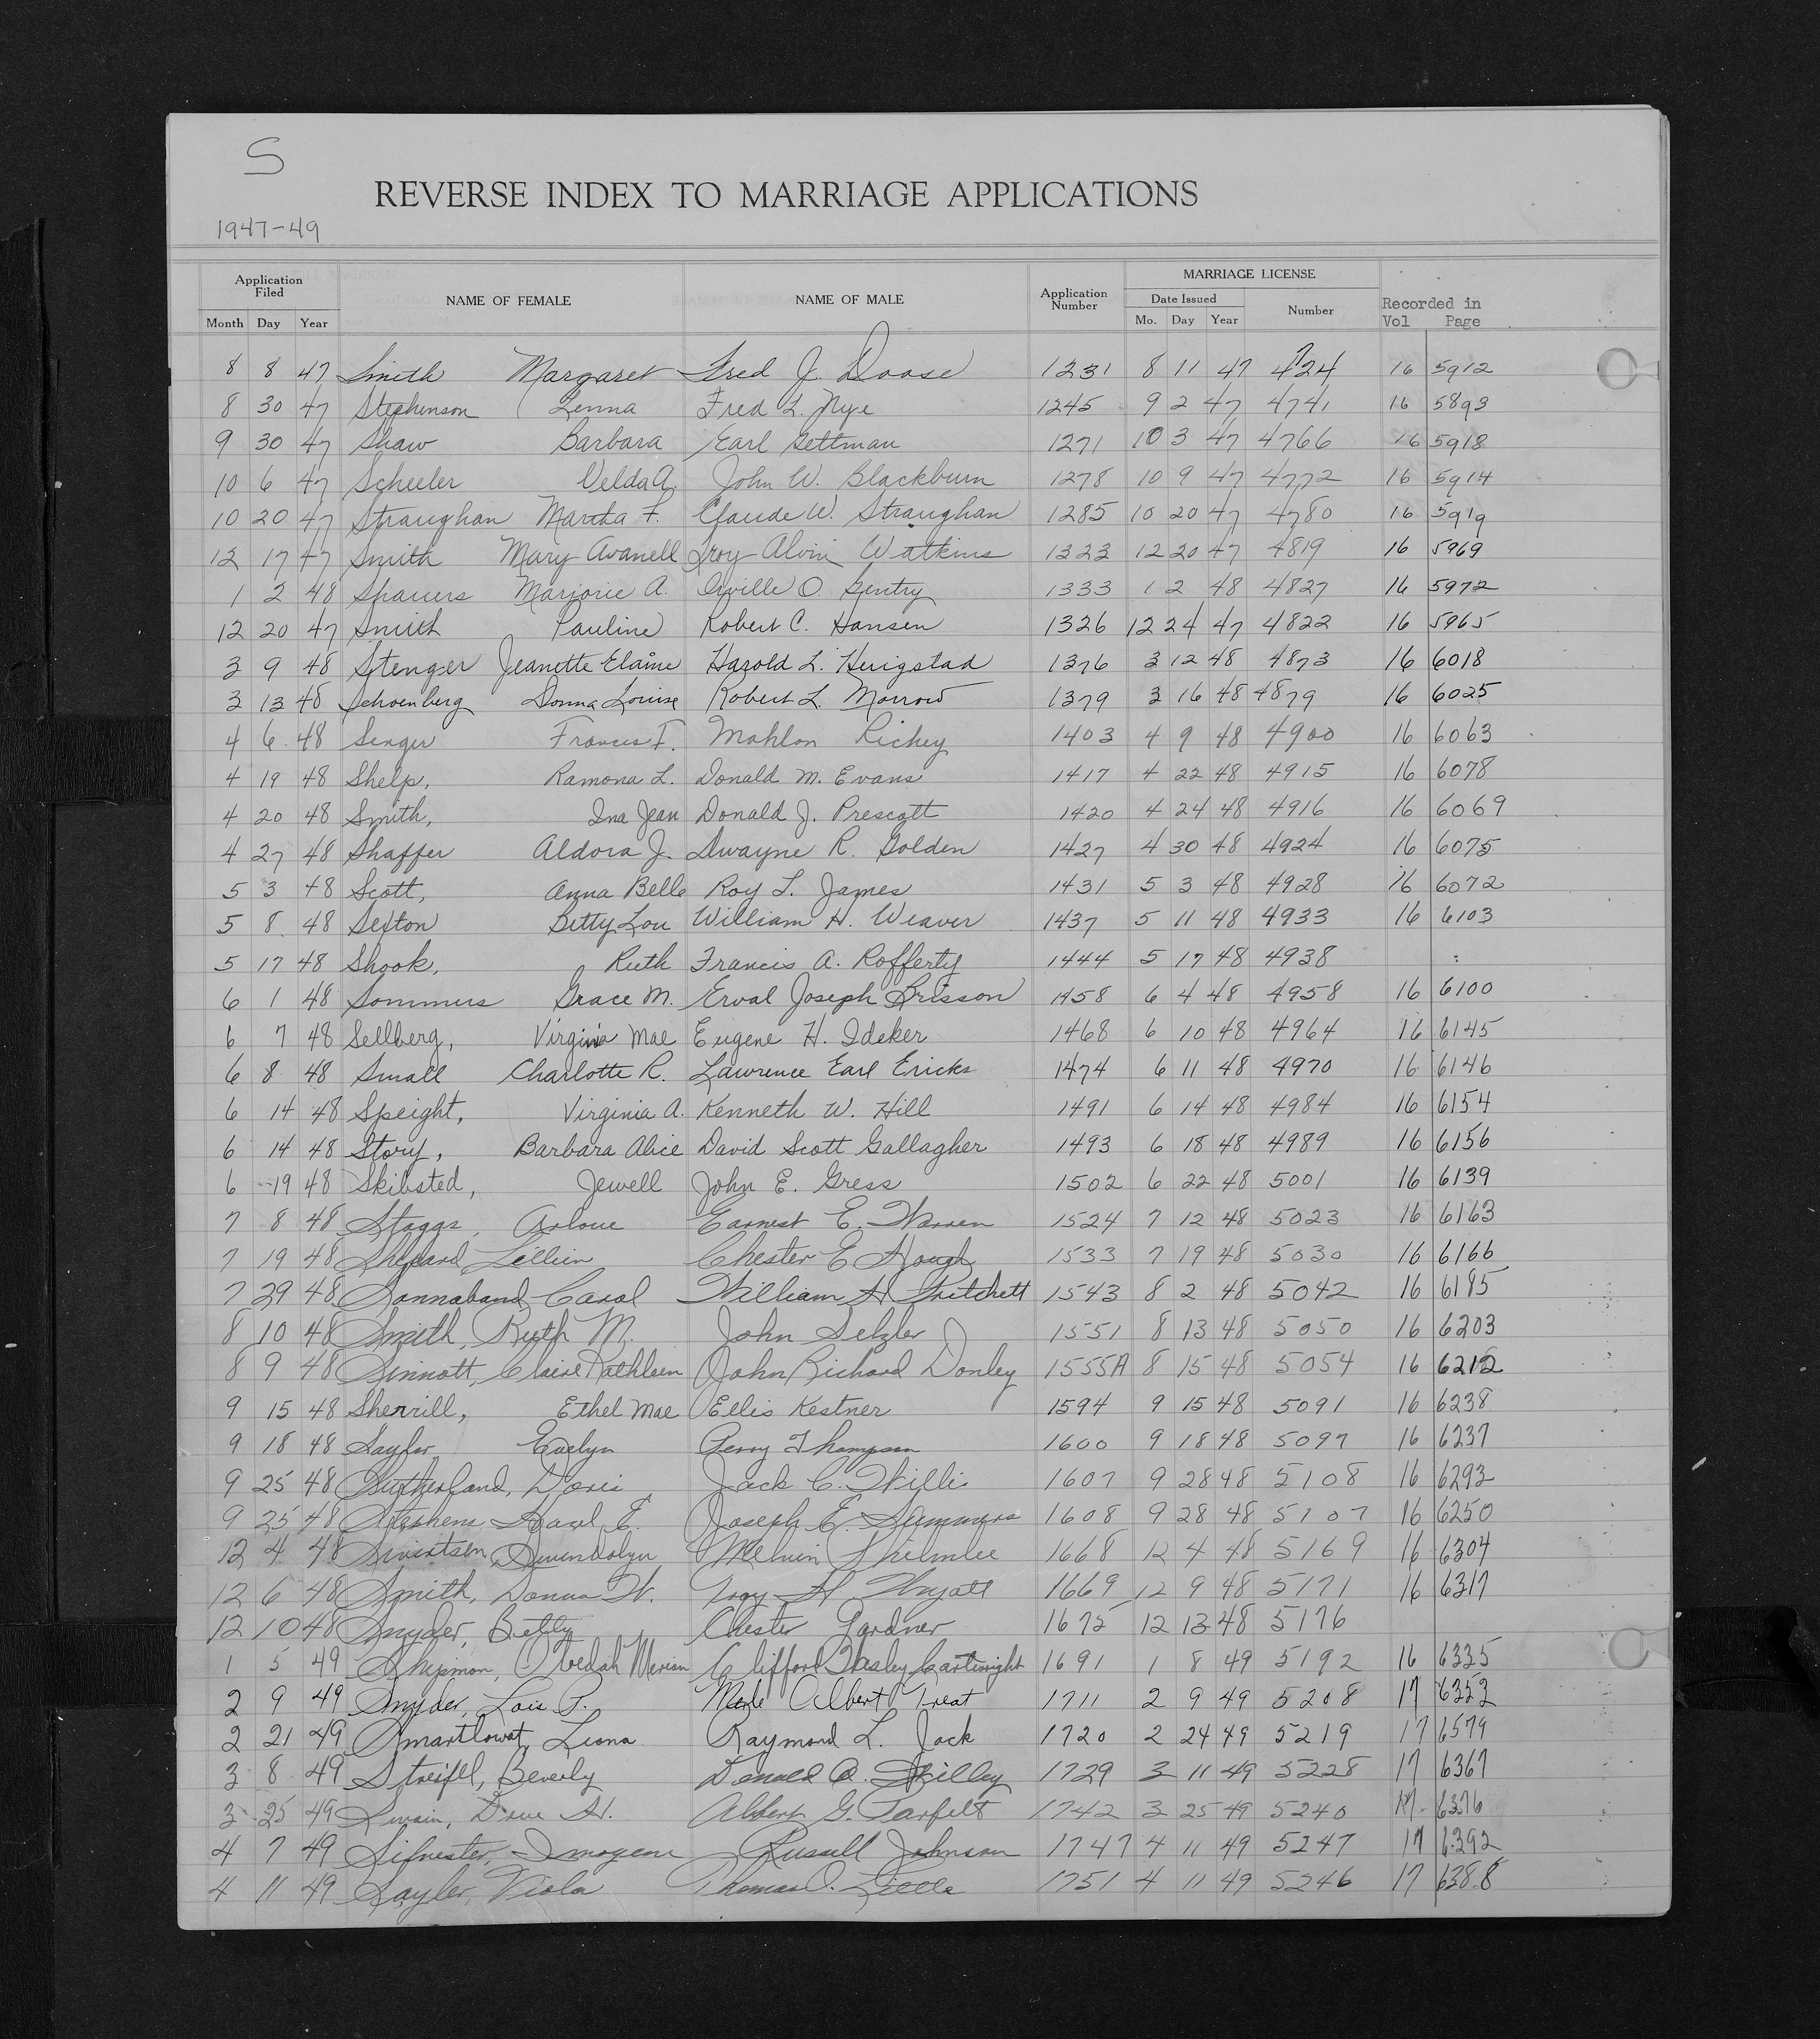 S
REVERSE INDEX TO MARRIAGE APPLICATIONS
1947-49
Application Filed NAME OF FEMALE NAME OF MALE Application Number MARRIAGE LICENSE Recorded in
Month Day Year Date Issued Number Vol Page
Mo. Day Year
8 8 47 Smith Margaret Fred J. Doose 1231 8 11 47 4724 16 5912
8 30 47 Stephenson Lenna Fred L. Nye 1245 9 2 47 4741 16 5893
9 30 47 Shaw Barbara Earl Gettman 1271 10 3 47 4766 16 5918
10 6 47 Scheeler Velda A. John W. Blackburn 1278 10 9 47 4772 16 5914
10 20 47 Straughan Martha F. Claude W. Straughan 1285 10 20 47 4780 16 5919
12 17 47 Smith Mary Avanell Troy Alvin Watkins 1323 12 20 47 4819 16 5969
1 2 48 Shauers Marjorie A. Orville O. Gentry 1333 1 2 48 4827 16 5972
12 20 47 Smith Pauline Robert C. Hansen 1326 12 24 47 4822 16 5965
3 9 48 Stenger Jeanette Elaine Harold L. Herigstad 1376 3 12 48 4873 16 6018
3 13 48 Schoenberg Donna Louise Robert L. Morrow 1379 3 16 48 4879 16 6025
4 6 48 Senger Frances F. Mahlon Richey 1403 4 9 48 4900 16 6063
4 19 48 Shelp, Ramona L. Donald M. Evans 1417 4 22 48 4915 16 6078
4 20 48 Smith, Ina Jean Donald J. Prescott 1420 4 24 48 4916 16 6069
4 27 48 Shaffer Aldora J. Dwayne R. Golden 1427 4 30 48 4924 16 6075
5 3 48 Scott, Anna Belle Roy L. James 1431 5 3 48 4928 16 6072
5 8 48 Sexton Betty Lou William H. Weaver 1437 5 11 48 4933 16 6103
5 17 48 Shook, Ruth Francis A. Rofferty 1444 5 17 48 4938
6 1 48 Sommers Grace M. Erval Joseph Brisson 1458 6 4 48 4958 16 6100
6 7 48 Sellberg, Virginia Mae Eugene H. Ideker 1468 6 10 48 4964 16 6145
6 8 48 Small Charlotte R. Lawrence Earl Ericks 1474 6 11 48 4970 16 6146
6 14 48 Speight, Virginia A. Kenneth W. Hill 1491 6 14 48 4984 16 6154
6 14 48 Story, Barbara Alice David Scott Gallagher 1493 6 18 48 4989 16 6156
6 19 48 Skibsted, Jewell John E. Gress 1502 6 22 48 5001 16 6139
7 8 48 Staggs, Arlone Earnest E. Warren 1524 7 12 48 5023 16 6163
7 19 48 Shepard, Lillian Chester E Hough 1533 7 19 48 5030 16 6166
7 29 48 Sonnaband, Carol William H Pritchett 1543 8 2 48 5042 16 6185
8 10 48 Smith, Ruth M. John Selzler 1551 8 13 48 5050 16 6203
8 9 48 Sinnott, Claire Kathleen John Richard Donley 1555A 8 15 48 5054 16 6212
9 15 48 Sherrill, Ethel Mae Ellis Kestner 1594 9 15 48 5091 16 6238
9 18 48 Saylor Evelyn Perry Thompson 1600 9 18 48 5097 16 6237
9 25 48 Sutherland, Doris Jack C. Willis 1607 9 28 48 5108 16 6293
9 25 48 Stephens Hazel E. Joseph E. Summers 1608 9 28 48 5107 16 6250
12 4 48 Sivertsen, Gwendolyn Melvin 1668 12 4 48 5169 16 6304
12 6 48 Smith, Donna W. Troy H Wyatt 1669 12 9 48 5171 16 6317
12 10 48 Snyder, Betty Chester Gardner 1675 12 13 48 5176
1 5 49 Shipman, Obedah Merian Clifford Wesley Cartwright 1691 1 8 49 5192 16 6335
2 9 49 Snyder, Lois P. Merle Albert Treat 1711 2 9 49 5208 17 6353
2 21 49 Smartlowat, Leona Raymond L. Jack 1720 2 24 49 5219 17 6579
3 8 49 Streifel, Beverly Donald O. Skilley 1729 3 11 49 5228 17 6367
3 25 49 Swain, Dove H. Albert G. Parfelt 1742 3 25 49 5240 17 6376
4 7 49 Silvester, Imogene Russell Johnson 1747 4 11 49 5247 17 6392
4 11 49 Sayler, Viola Thomas O. Little 1751 4 11 49 5246 17 6388